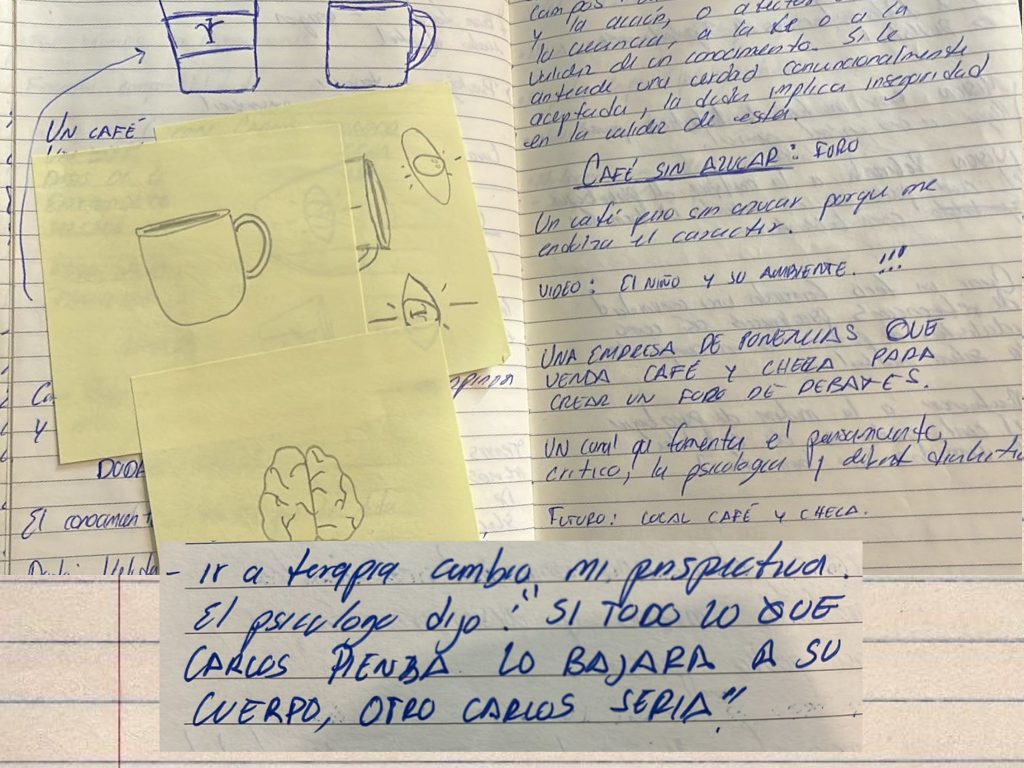 UN CAFÉ
DUDA
El conocimient
y la acción, o
la creencia, a la fe o a la
validez de un conocimento. Si le
antecede una verdad convencionalmente
aceptada, la duda implica inseguridad
en la validez de esta.
CAFÉ SIN AZUCAR: FORO
Un café pero sin azucar porque me
endulza el caracter.
VIDEO: El NIÑO Y SU AMBIENTE. !!!
UNA EMPRESA DE PONENCIAS QUE
VENDA CAFÉ Y CHELA PARA
CREAR UN FORO DE DEBATES.
Un canal qe fomente el pensamiento
critico, la psicologia y debat
FUTURO: LOCAL CAFÉ Y CHELA.
- ir a terapia cambio mi perspectiva.
El psicologo dijo: "SI TODO LO QUE
CARLOS PIENSA LO BAJARA A SU
CUERPO, OTRO CARLOS SERIA"